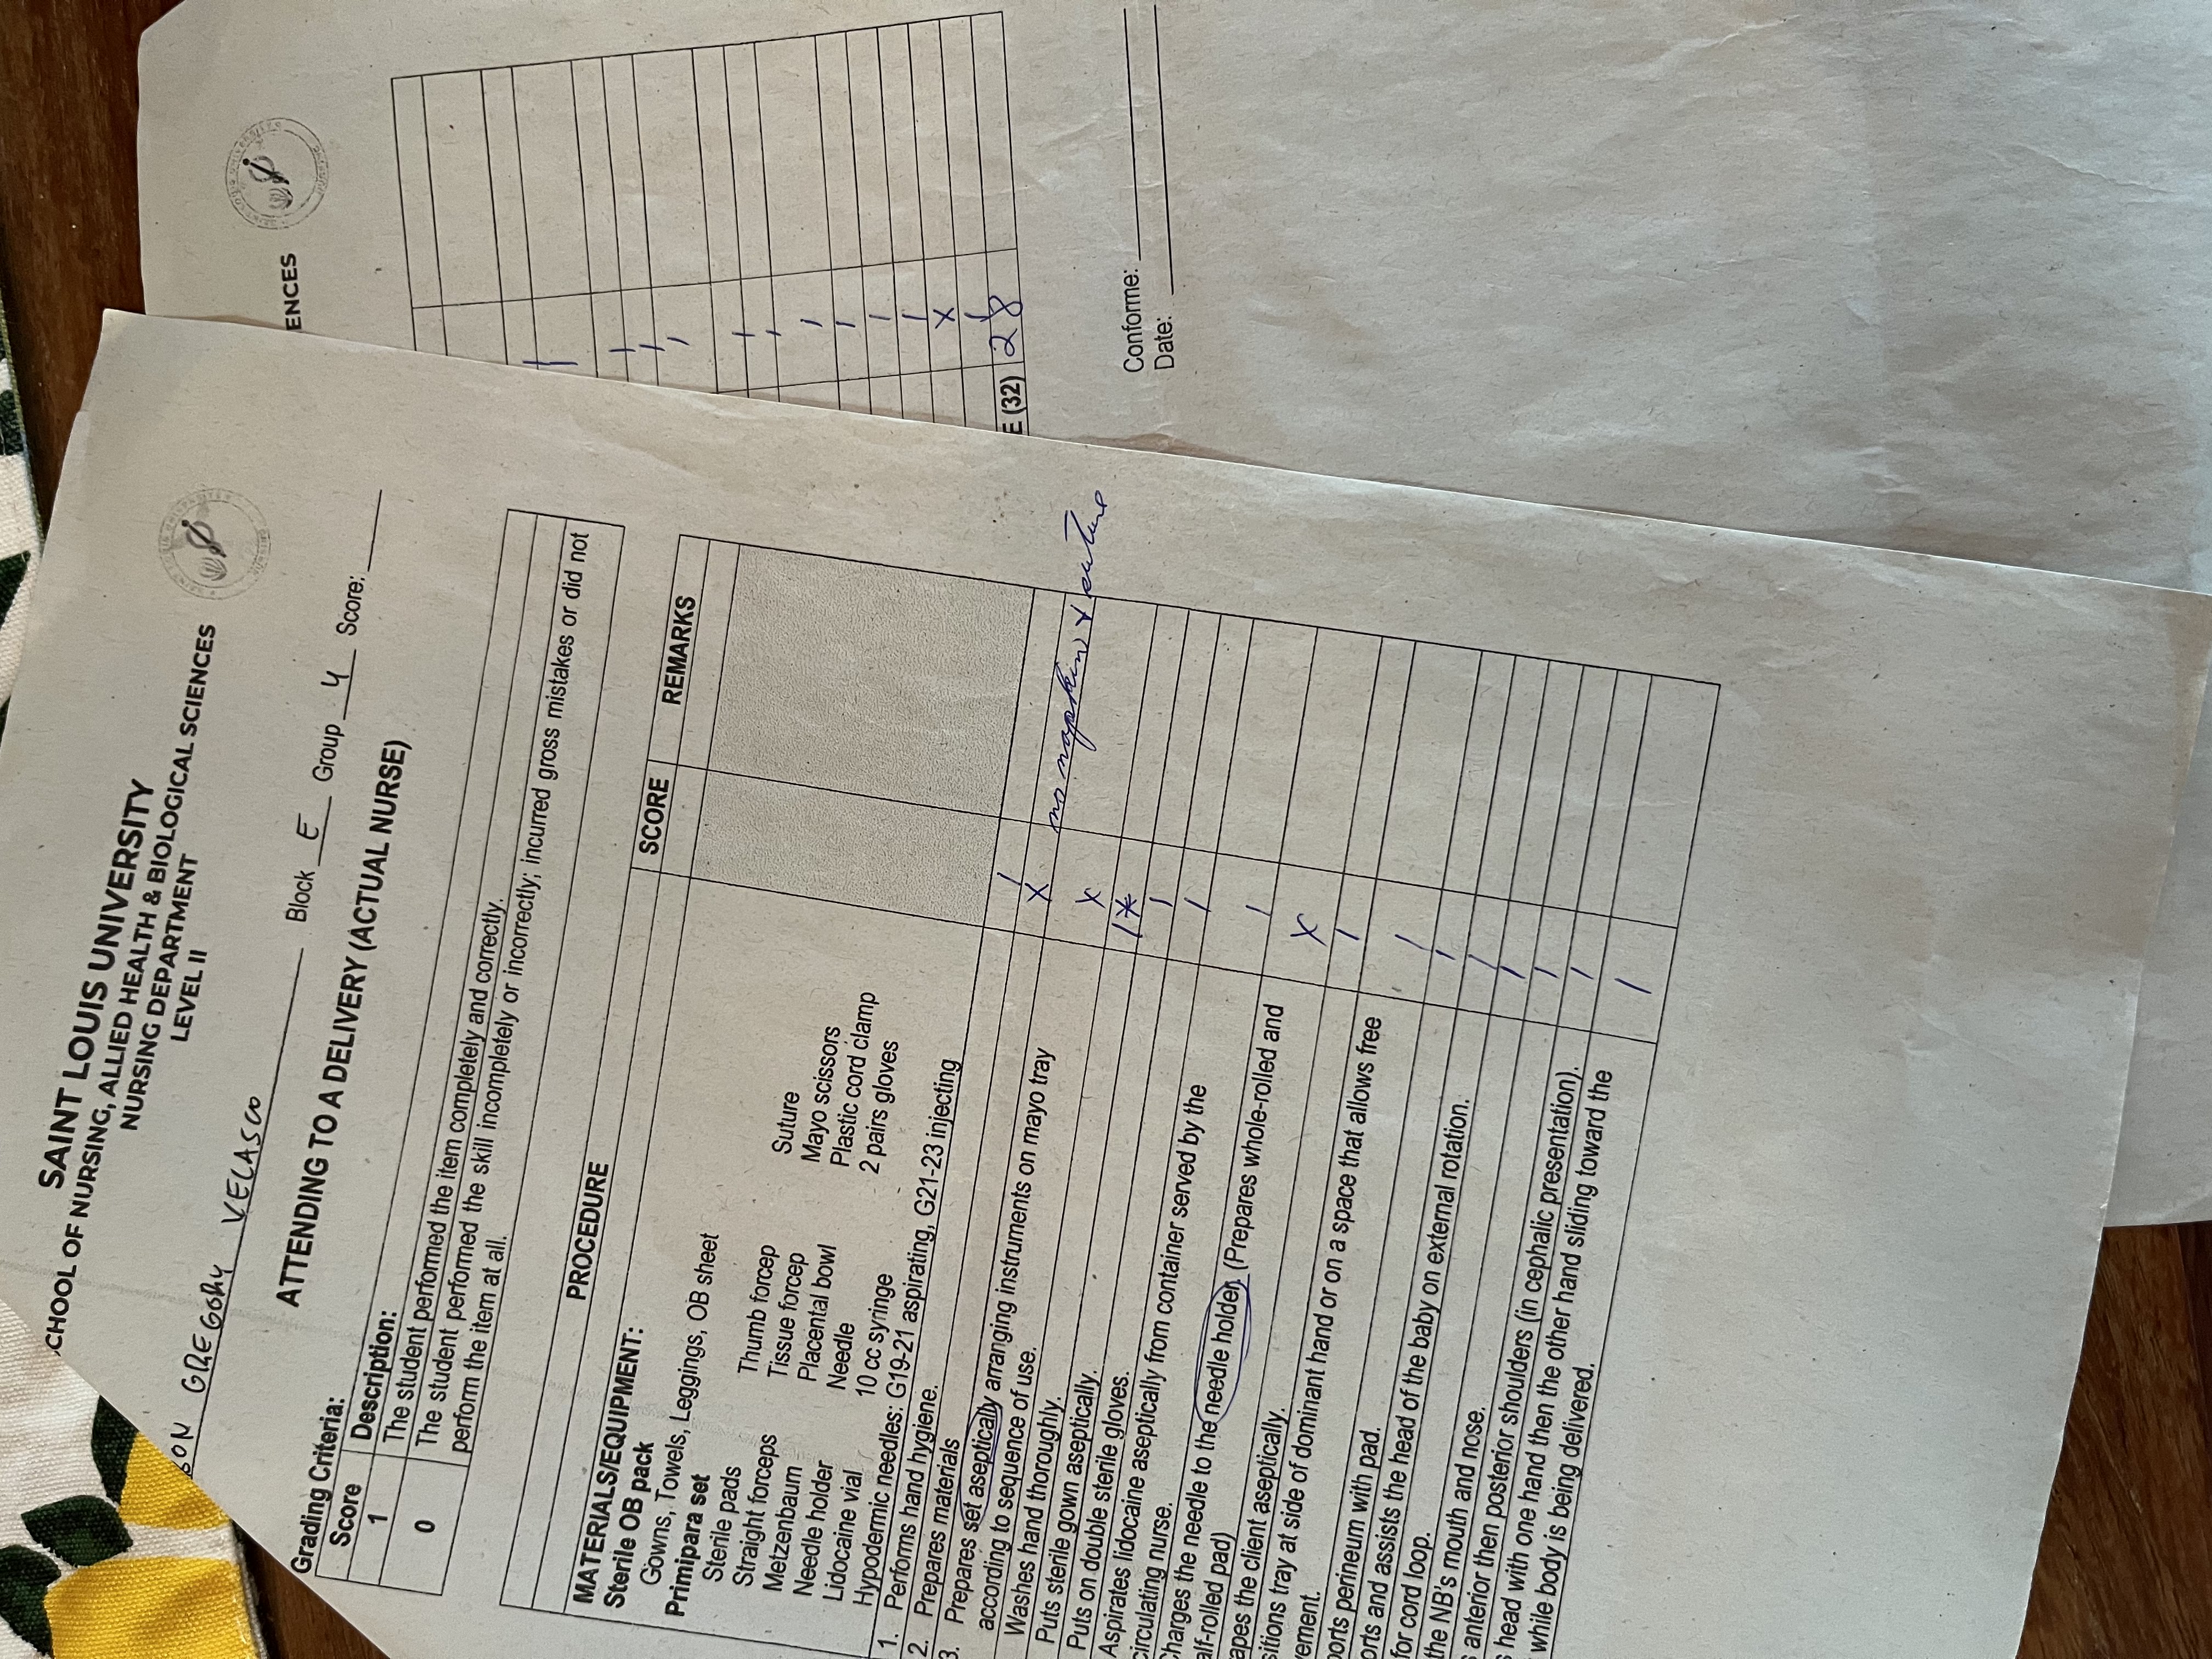 SAINT LOUIS UNIVERSITY
SCHOOL OF NURSING, ALLIED HEALTH & BIOLOGICAL SCIENCES
NURSING DEPARTMENT
LEVEL II
SON GREGORY VELASCO
Block E Group 4 Score:
ATTENDING TO A DELIVERY (ACTUAL NURSE)
Grading Criteria:
Score Description:
1 The student performed the item completely and correctly.
0 The student performed the skill incompletely or incorrectly; incurred gross mistakes or did not
perform the item at all.
PROCEDURE SCORE REMARKS
MATERIALS/EQUIPMENT:
Sterile OB pack
Gowns, Towels, Leggings, OB sheet
Primipara set
Sterile pads Thumb forcep Suture
Straight forceps Tissue forcep Mayo scissors
Metzenbaum Placental bowl Plastic cord clamp
Needle holder Needle 2 pairs gloves
Lidocaine vial 10 cc syringe
Hypodermic needles: G19-21 aspirating, G21-23 injecting
1. Performs hand hygiene. /
2. Prepares materials X no napkin & suture
3. Prepares set aseptically arranging instruments on mayo tray
according to sequence of use. X
Washes hand thoroughly. / X
Puts sterile gown aseptically. /
Puts on double sterile gloves. /
Aspirates lidocaine aseptically from container served by the
circulating nurse. /
Charges the needle to the needle holder. (Prepares whole-rolled and
alf-rolled pad) X
apes the client aseptically. /
sitions tray at side of dominant hand or on a space that allows free
vement. /
ports perineum with pad. /
orts and assists the head of the baby on external rotation. /
for cord loop. /
the NB's mouth and nose. /
s anterior then posterior shoulders (in cephalic presentation). /
s head with one hand then the other hand sliding toward the
while body is being delivered. /
ENCES
/
/
/
/
/
/
/
/
/
/
X
/
E (32) 28
Conforme:
Date: